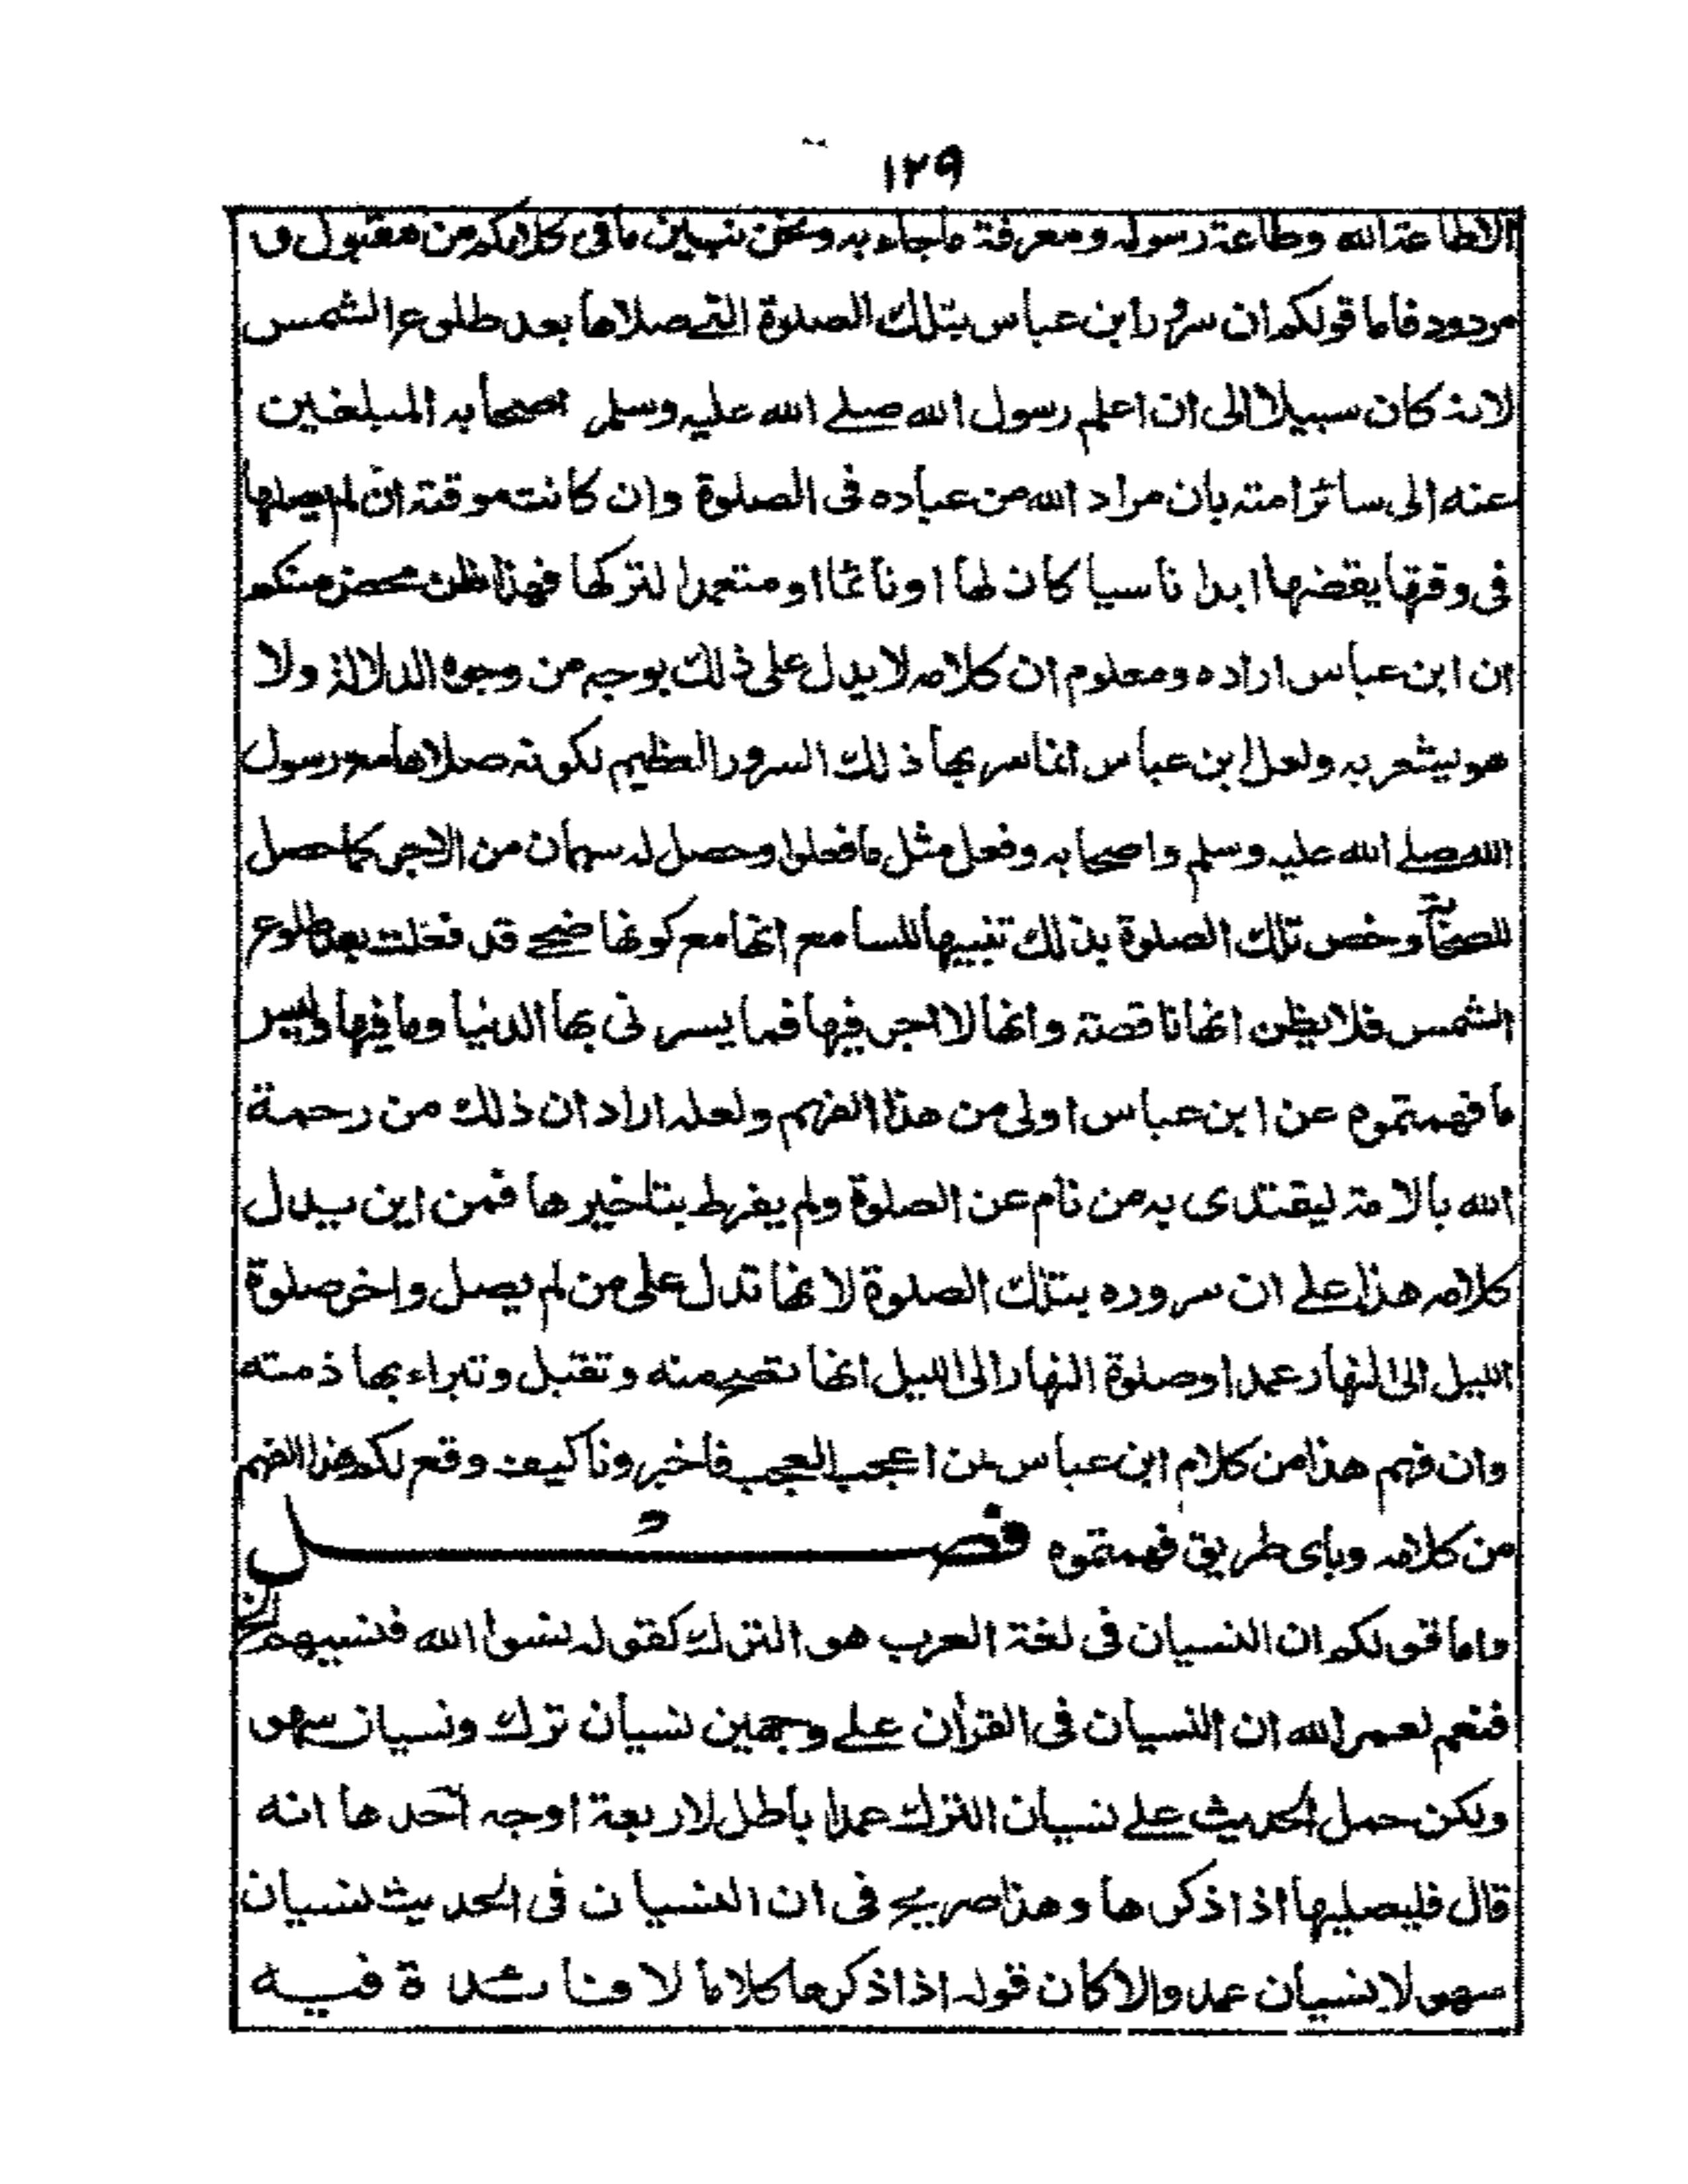 ١٢٩
الاطاعة الله وطاعة رسوله ومعرفة ما جاء به ونحن نبين ما في كلامكم من مقبول و
مردود فاما قولكم ان سرور ابن عباس بتلك الصلوة التي صلاها بعد طلوع الشمس
لانه كان سبيلا الى ان اعلم رسول الله صلى الله عليه وسلم اصحابه المبلغين
عنه الى سائر امته بان مراد الله من عباده في الصلوة وان كانت موقتة ان لم يصلها
في وقتها يقضها ابدا ناسيا كان لها او نائما او متعمدا لتركها فهذا ظن محض منكم
ان ابن عباس اراده ومعلوم ان كلامه لا يدل على ذلك بوجه من وجوه الدلالة ولا
هو يشعر به ولعل ابن عباس انما سر بها ذلك السرور العظيم لكونه صلاها مع رسول
الله صلى الله عليه وسلم واصحابه وفعل مثل ما فعلوا وحصل له سهمان من الاجر كما حصل
للصحابة وخص تلك الصلوة بذلك تنبيها للسامع انها مع كونها ضحى قد فعلت بعد طلوع
الشمس فلا يظن انها ناقصة وانها لا اجر فيها فما يسرني بها الدنيا وما فيها وليس
ما فهمتموه عن ابن عباس اولى من هذا الفهم ولعله اراد ان ذلك من رحمة
الله بالامة ليقتدى به من نام عن الصلوة ولم يفرط بتاخيرها فمن اين يدل
كلامه هذا على ان سروره بتلك الصلوة لانها تدل على من لم يصل واخر صلوة
الليل الى النهار عمدا وصلوة النهار الى الليل انها تصح منه وتقبل وتبراء بها ذمته
وان فهم هذا من كلام ابن عباس من اعجب العجب فاخبرونا كيف وقع لكم هذا الفهم
من كلامه وباى طريق فهمتموه فصل
واما قولكم ان النسيان في لغة العرب هو الترك كقوله نسوا الله فنسيهم الخ
فنعم لعمر الله ان النسيان في القرآن على وجهين نسيان ترك ونسيان سهو
ولكن حمل الحديث على نسيان الترك عمدا باطل لاربعة اوجه احدها انه
قال فليصليها اذا ذكرها وهذا صريح في ان النسيان في الحديث نسيان
سهو لا نسيان عمد والا كان قوله اذا ذكرها كلاما لا فائدة فيه